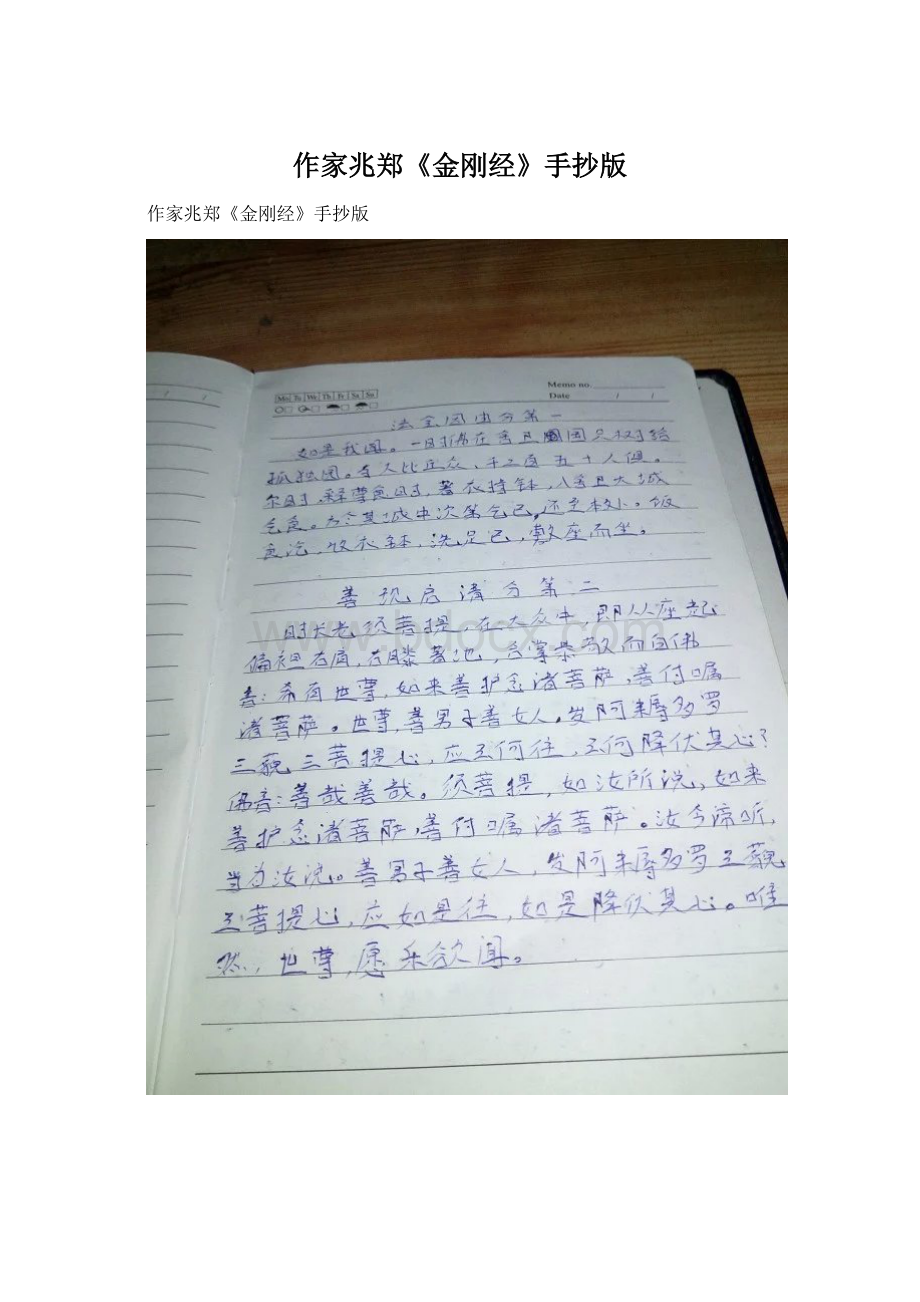 作家兆郑《金刚经》手抄版
作家兆郑《金刚经》手抄版
Memo no.
Mo Tu We Th Fr Sa Su
Date / /
法会因由分第一
如是我闻。一时佛在舍卫国只树给
孤独园。与大比丘众、千二百五十人俱。
尔时,释尊食时,著衣持钵,入舍卫大城
乞食。于其城中次第乞已,还至本处。饭
食讫,收衣钵,洗足已,敷座而坐。
善现启请分第二
时长老须菩提,在大众中,即从座起
偏袒右肩,右膝著地,合掌恭敬而白佛
言:希有世尊,如来善护念诸菩萨,善付嘱
诸菩萨。世尊,善男子善女人。发阿耨多罗
三藐三菩提心,应云何住,云何降伏其心?
佛言:善哉善哉。须菩提,如汝所说,如来
善护念诸菩萨,善付嘱诸菩萨。汝今谛听,
当为汝说。善男子善女人,发阿耨多罗三藐
三菩提心,应如是住,如是降伏其心。唯
然,世尊,愿乐欲闻。
www.bdocx.com